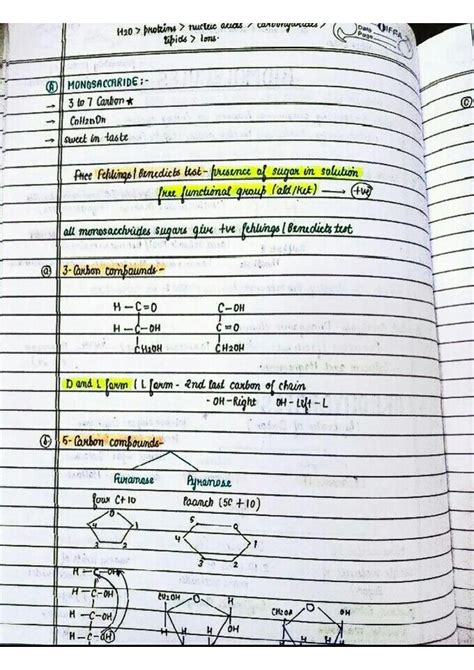 H2O > proteins > nucleic acids > carbohydrates >
lipids > ions.
Date
Page
(A) MONOSACCARIDE:-
→ 3 to 7 Carbon★
→ CnH2nOn
→ sweet in taste
Free Fehlings / Benedicts test - presence of sugar in solution
free functional group (ald/ket) → (+ve)
all monosacchrides sugars give +ve fehlings / Benedicts test
(a) 3-Carbon compounds -
H - C = O C - OH
H - C - OH C = O
CH2OH CH2OH
D and L form ( L form - 2nd last carbon of chain
- OH - Right OH - Left - L
(b) 5-Carbon compounds-
Furanose Pyranose
four C + 1O Paanch (5C + 1O)
O 5 O
4 1 4 1
3 2 3 2
H - C - OH
H - C - OH CH2OH O CH2OH O OH
H - C - OH H H OH H
H - C - OH